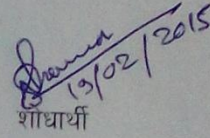 19/02/2015
शोधार्थी